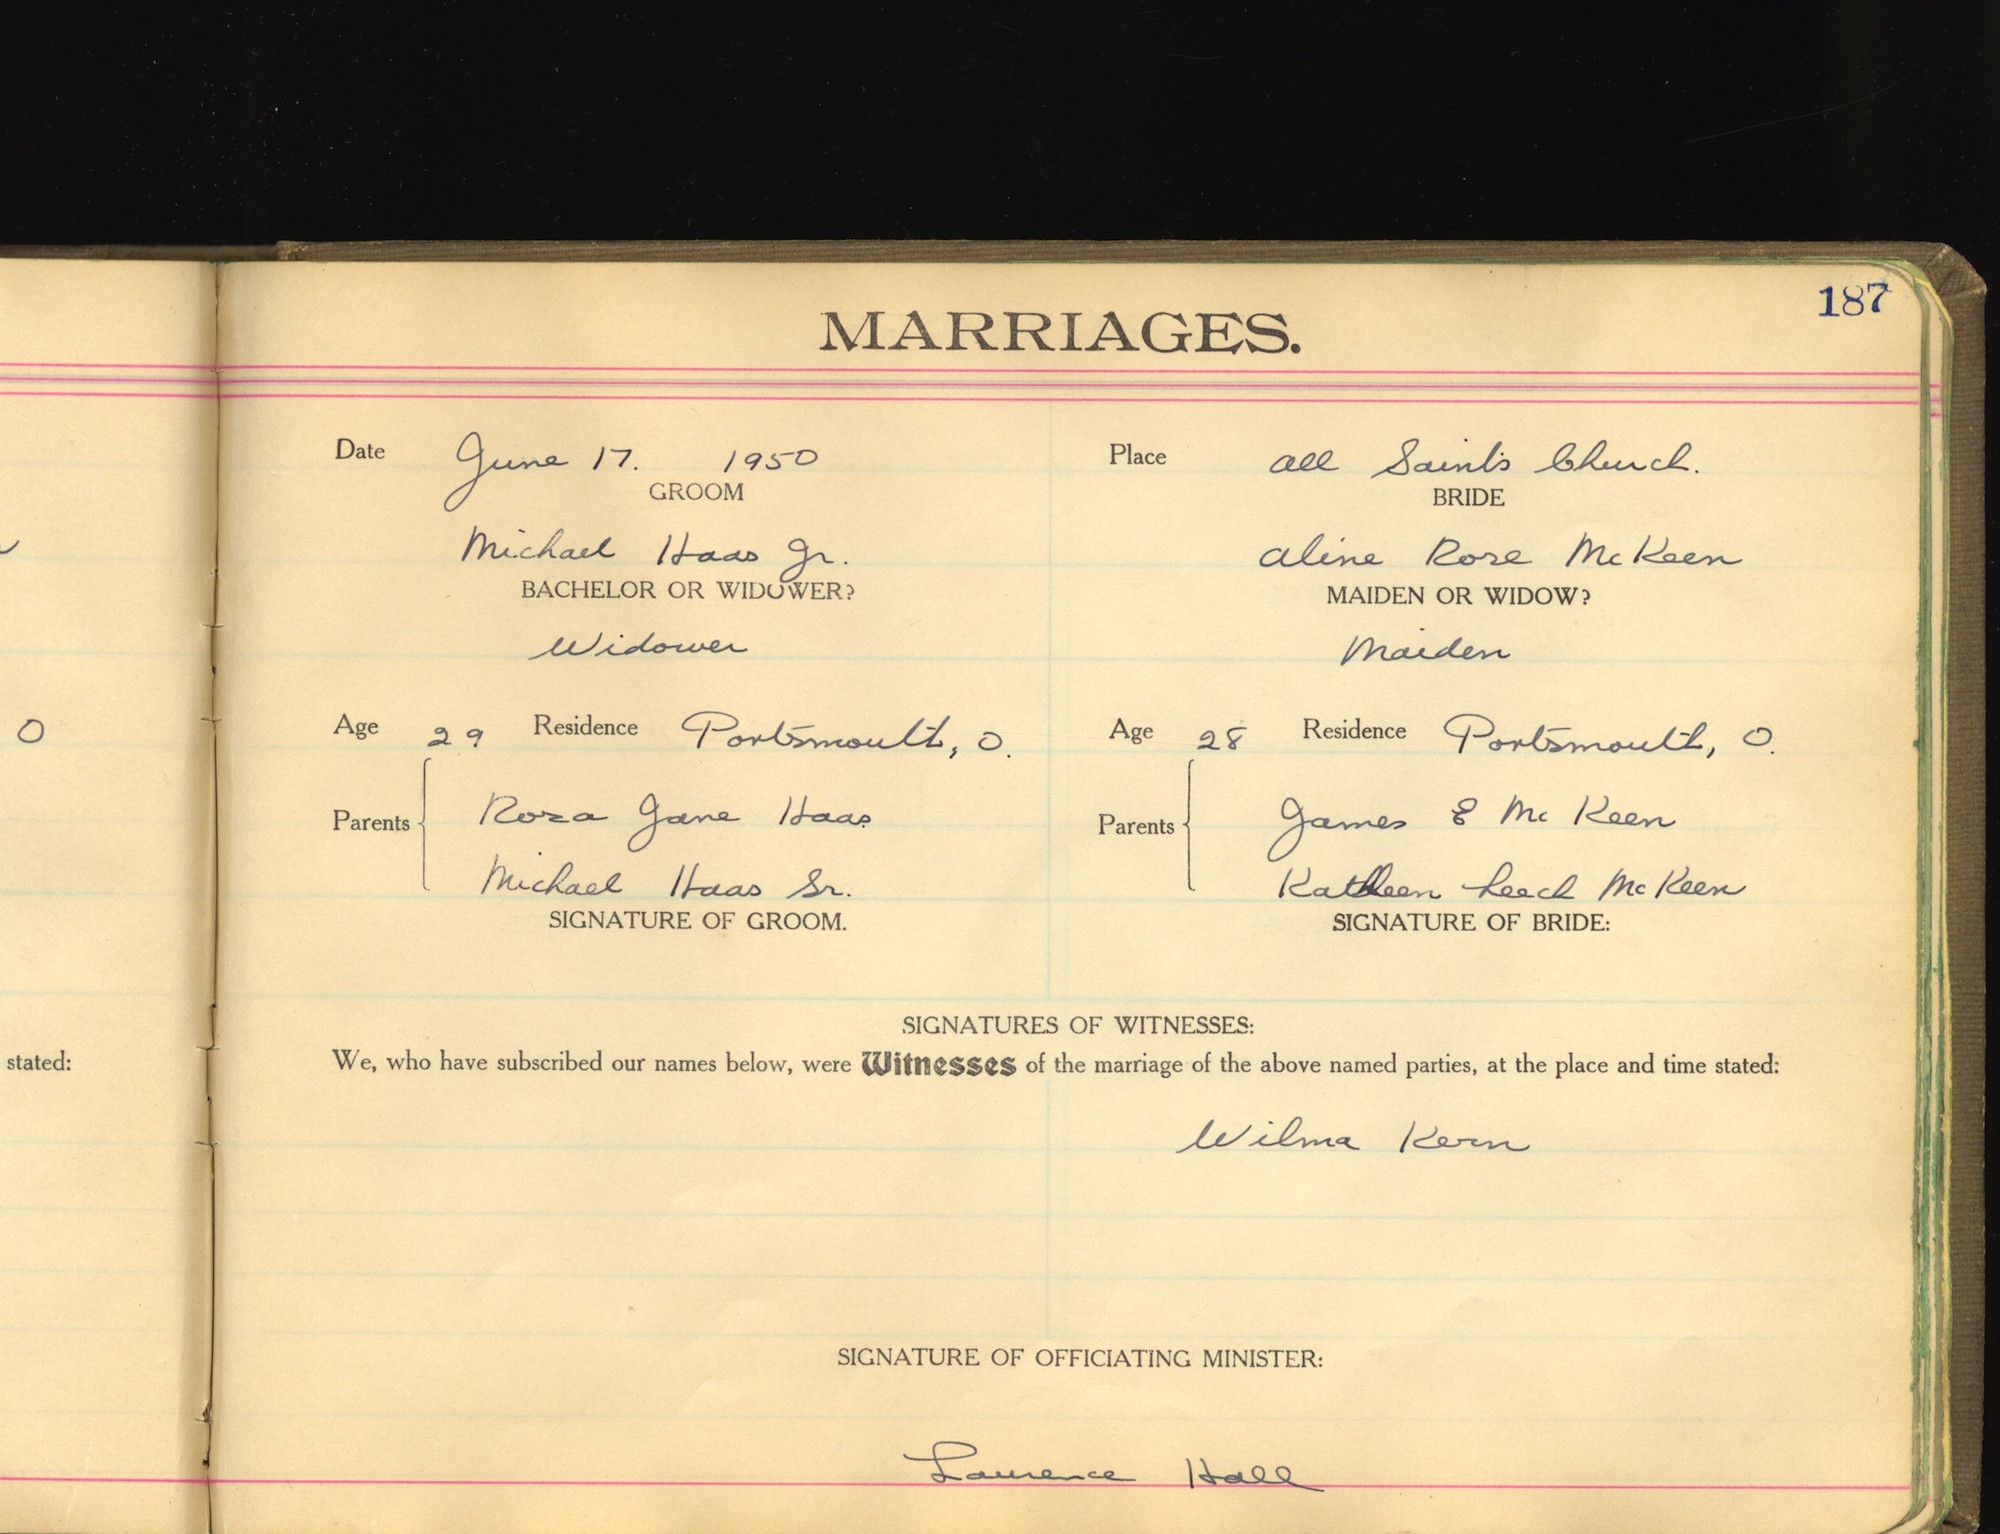 187
MARRIAGES.
Date June 17. 1950 Place All Saints Church.
GROOM BRIDE
Michael Haas Jr. Aline Rose McKeen
BACHELOR OR WIDOWER? MAIDEN OR WIDOW?
Widower Maiden
O Age 29 Residence Portsmouth, O. Age 28 Residence Portsmouth, O.
Parents Roza Jane Haas Parents James E McKeen
Michael Haas Sr. Kathleen Leech McKeen
SIGNATURE OF GROOM. SIGNATURE OF BRIDE:
SIGNATURES OF WITNESSES:
stated: We, who have subscribed our names below, were Witnesses of the marriage of the above named parties, at the place and time stated:
Wilma Kern
SIGNATURE OF OFFICIATING MINISTER:
Laurence Hall